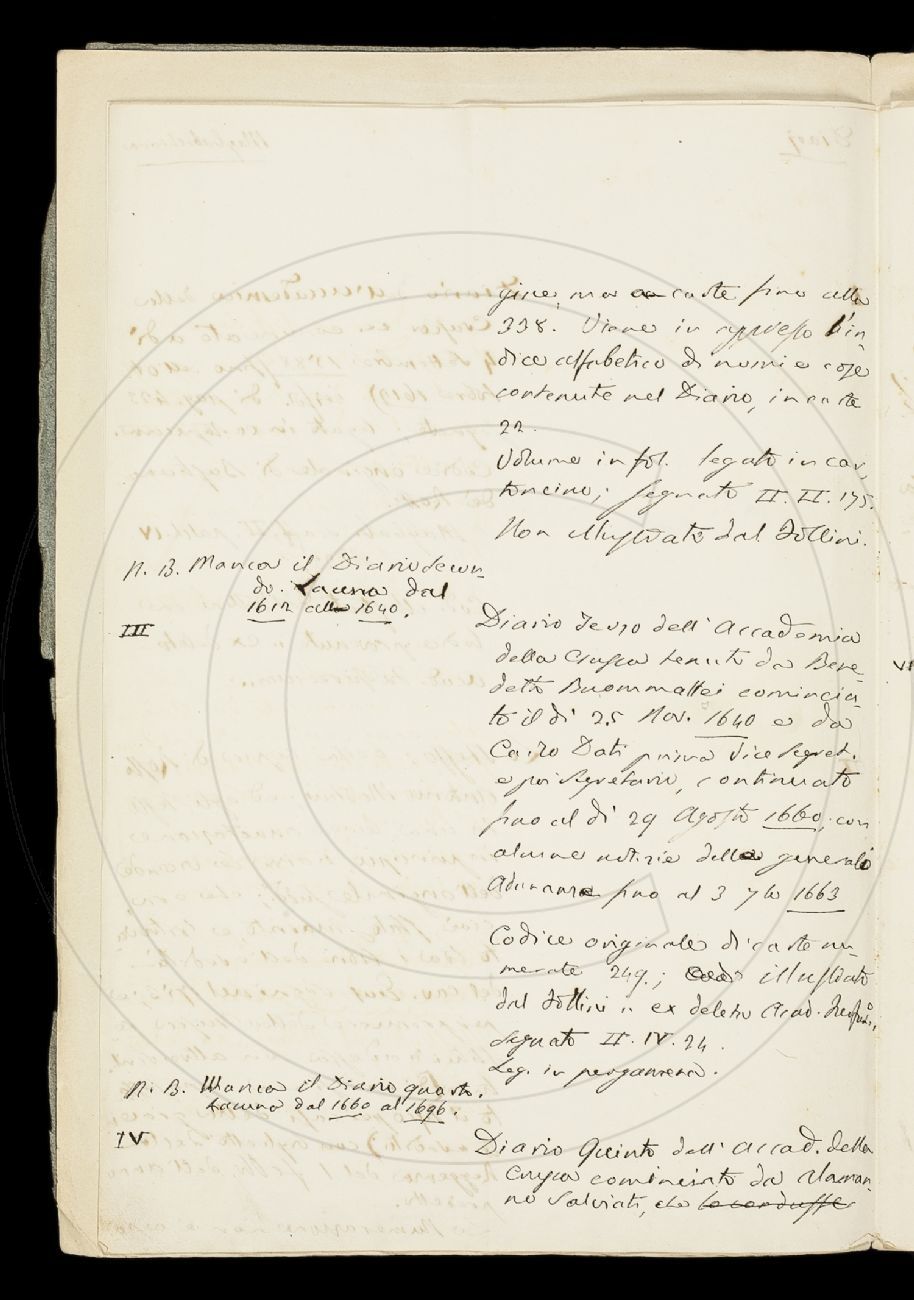 gine, ma carte fino alla
338. Viene in appresso l'in-
dice alfabetico di nomi e cose
contenute nel Diario, in carte
22.
Volume in fol. legato in car-
toncino; segnato II. II. 175.
Non illustrato dal Follini.
N. B. Manca il Diario Secon-
do. Lacuna dal
1612 al 1640.
III
Diario Terzo dell' Accademia
della Crusca tenuto da Bene-
detto Buommattei comincia-
to il dì 25 Nov. 1640 e da
Carlo Dati prima Vice Segret.
e poi Segretario, continuato
fino al dì 29 Agosto 1660, con
alcune notizie delle generali
Adunanze fino al 3 7bre 1663
Codice originale di carte nu-
merate 249.; illustrato
dal Follini "ex deletis Acad.
segnato II. IV. 24.
Leg. in pergamena.
N. B. Manca il Diario quarto.
Lacuna dal 1660 al 1696.
IV
Diario Quinto dell' Accad. della
Crusca cominciato da Alaman-
no Salviati, che le condusse